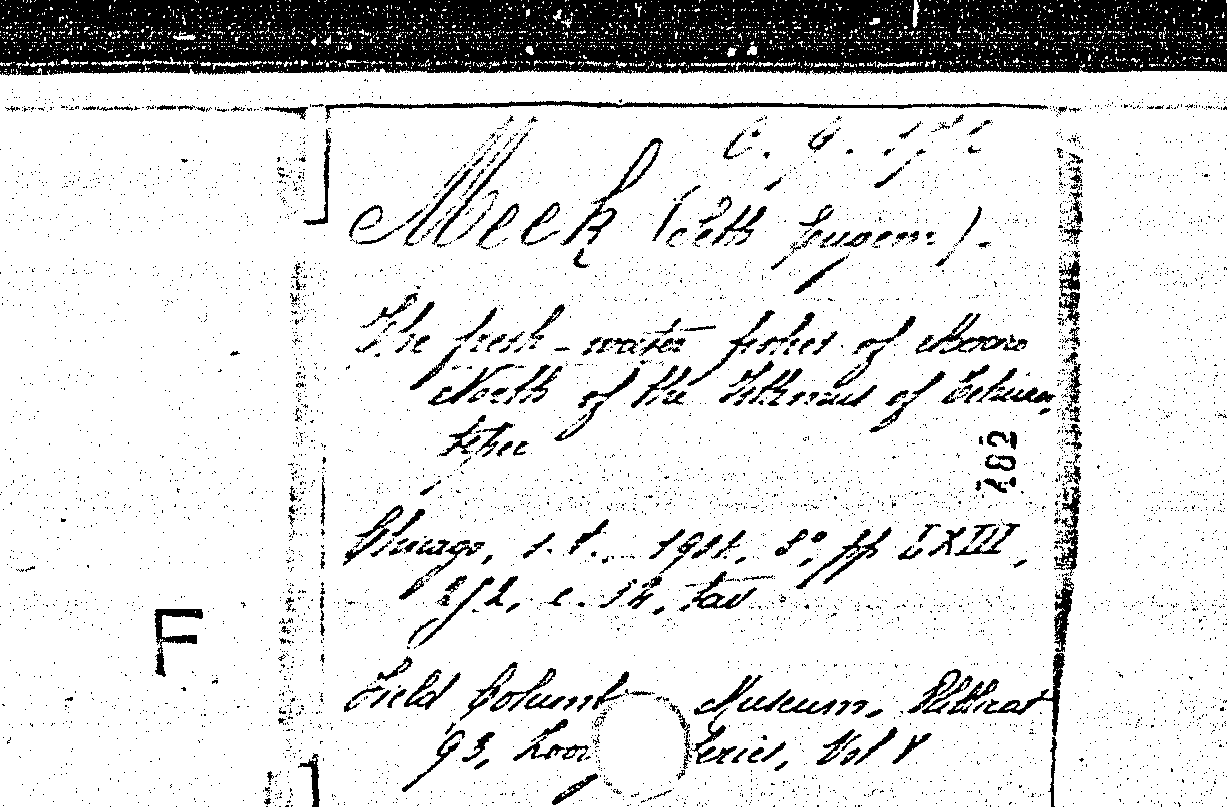 C. 9.
Meek (Seth Eugene).-
The fresh-water fishes of Mexico
North of the Isthmus of Tehuan
tepec
202
Chicago, s. t. 1904. 8°, pp LXIII,
252, c. 14, tav
F
Field Columb Museum, Publicat
93, Zoo Series, Vol V